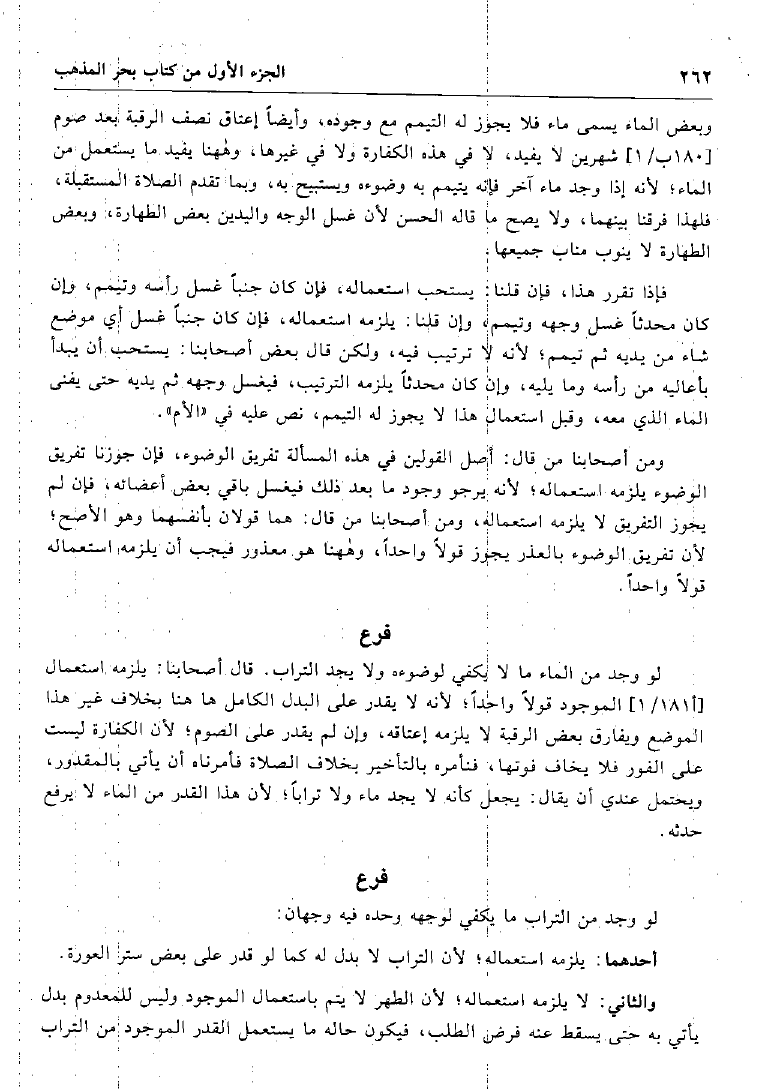 ٢٦٢
الجزء الأول من كتاب بحر المذهب
وبعض الماء يسمى ماء فلا يجوز له التيمم مع وجوده، وأيضاً إعتاق نصف الرقبة بعد صوم
[١٨٠ب/ ١] شهرين لا يفيد، لا في هذه الكفارة ولا في غيرها، وههنا يفيد ما يستعمل من
الماء؛ لأنه إذا وجد ماء آخر فإنه يتيمم به وضوءه ويستبيح به، وبما تقدم الصلاة المستقبلة،
فلهذا فرقنا بينهما، ولا يصح ما قاله الحسن لأن غسل الوجه واليدين بعض الطهارة، وبعض
الطهارة لا ينوب مناب جميعها.
فإذا تقرر هذا، فإن قلنا: يستحب استعماله، فإن كان جنباً غسل رأسه وتيمم، وإن
كان محدثاً غسل وجهه وتيمم، وإن قلنا: يلزمه استعماله، فإن كان جنباً غسل أي موضع
شاء من يديه ثم تيمم؛ لأنه لا ترتيب فيه، ولكن قال بعض أصحابنا: يستحب أن يبدأ
بأعاليه من رأسه وما يليه، وإن كان محدثاً يلزمه الترتيب، فيغسل وجهه ثم يديه حتى يفنى
الماء الذي معه، وقبل استعمال هذا لا يجوز له التيمم، نص عليه في «الأم».
ومن أصحابنا من قال: أصل القولين في هذه المسألة تفريق الوضوء، فإن جوزنا تفريق
الوضوء يلزمه استعماله؛ لأنه يرجو وجود ما بعد ذلك فيغسل باقي بعض أعضائه، فإن لم
يجوز التفريق لا يلزمه استعماله، ومن أصحابنا من قال: هما قولان بأنفسهما وهو الأصح؛
لأن تفريق الوضوء بالعذر يجوز قولاً واحداً، وههنا هو معذور فيجب أن يلزمه استعماله
قولاً واحداً.
فرع
لو وجد من الماء ما لا يكفي لوضوءه ولا يجد التراب. قال أصحابنا: يلزمه استعمال
[١٨١أ/ ١] الموجود قولاً واحداً؛ لأنه لا يقدر على البدل الكامل ها هنا بخلاف غير هذا
الموضع ويفارق بعض الرقبة لا يلزمه إعتاقه، وإن لم يقدر على الصوم؛ لأن الكفارة ليست
على الفور فلا يخاف فوتها، فنأمره بالتأخير بخلاف الصلاة فأمرناه أن يأتي بالمقدور،
ويحتمل عندي أن يقال: يجعل كأنه لا يجد ماء ولا تراباً؛ لأن هذا القدر من الماء لا يرفع
حدثه.
فرع
لو وجد من التراب ما يكفي لوجهه وحده فيه وجهان:
أحدهما: يلزمه استعماله؛ لأن التراب لا بدل له كما لو قدر على بعض ستر العورة.
والثاني: لا يلزمه استعماله؛ لأن الطهر لا يتم باستعمال الموجود وليس للمعدوم بدل
يأتي به حتى يسقط عنه فرض الطلب، فيكون حاله ما يستعمل القدر الموجود من التراب